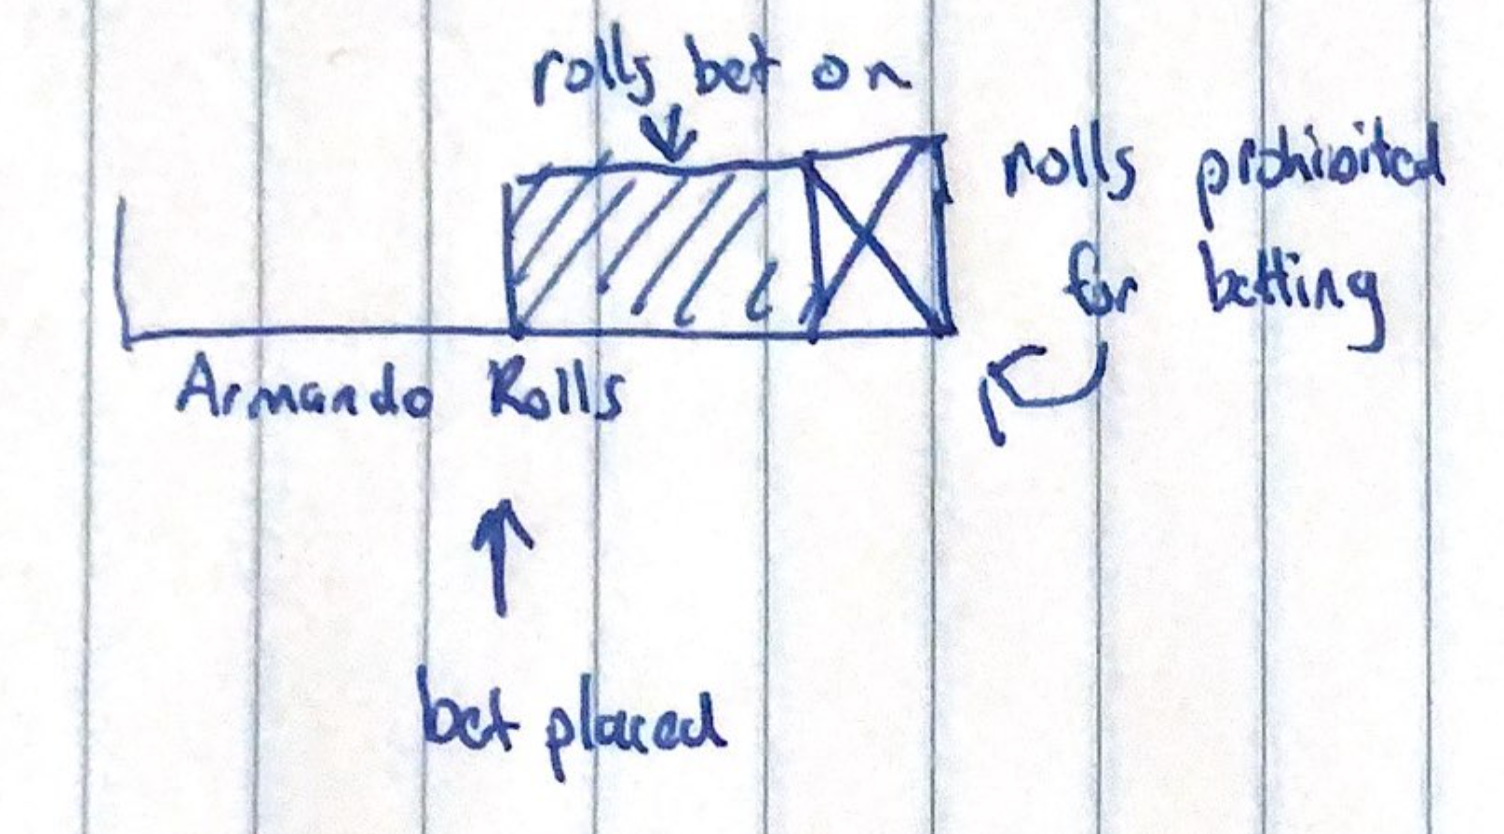 rolls bet on
rolls prohibited
for betting
Armando Rolls
bet placed